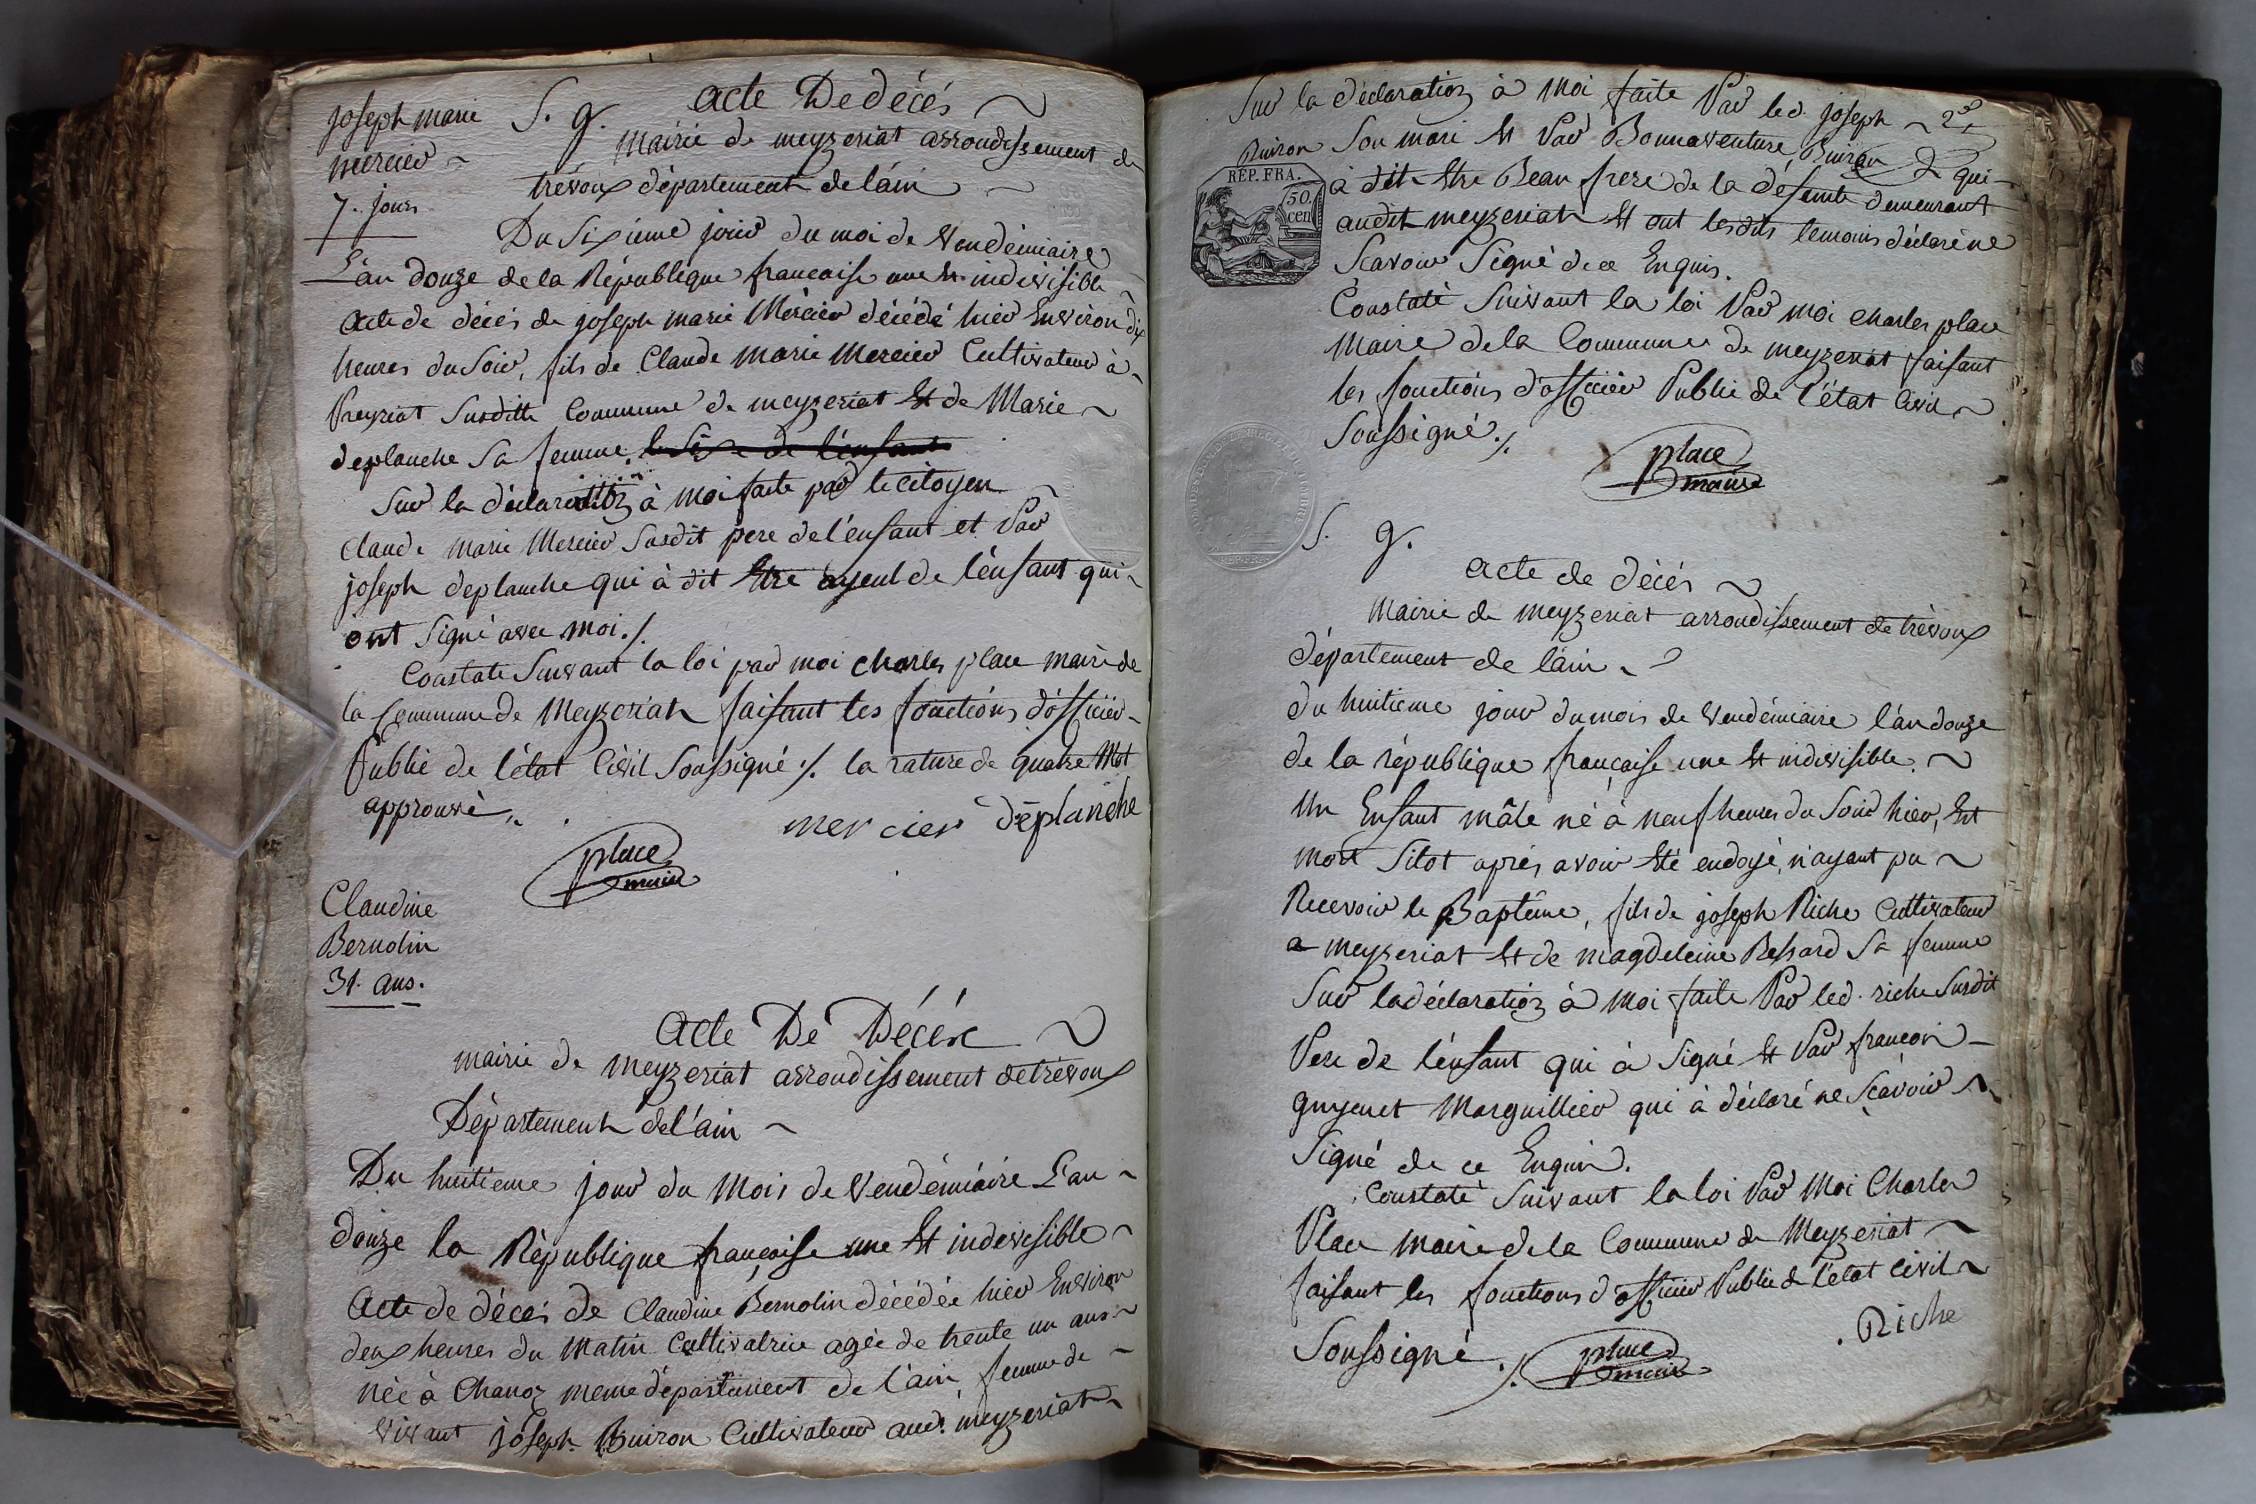 joseph marie
mercier ~
7. jours
S. g. acte De décés ~
mairie de meyzeriat arrondissement de
trévoux département de l'ain ~
Du Sixieme jour du moi de Vendémiaire
L'an douze de la République francaise une et indivisible
acte de décés de joseph marie Mercier décédé hier Environ dix
heures du Soir, fils de Claude Marie Mercier Cultivateur à
Preyriat Susditte Commune de meyzeriat Et de Marie ~
deplanche Sa femme,
Sur la déclaration à moi faite par le citoyen
Claude marie Mercier Susdit pere de l'enfant et Par
joseph deplanche qui à dit Etre ayeul de l'enfant qui
ont Signé avec moi ./.
Constaté Suivant la loi par moi charles place maire de
la Commune de Meyzeriat faisant les fonctions d'officier
Public de l'état Civil Soussigné ./. la rature de quatre Mot
approuvé,
mercier déplanche
place
maire
Claudine
Bernolin
31. ans.
Acte De Décés ~
mairie de meyzeriat arrondissement de trévoux
Département de l'ain ~
Du huitieme jour du Mois de Vendémiaire L'an ~
douze la République française une Et indivisible ~
Acte de décés de Claudine Bernolin décédée hier Environ
deux heures du Matin Cultivatrice agée de trente un ans ~
née à Chanoz meme département de l'ain, femme de ~
vivant joseph Buiron Cultivateur aud. meyzeriat ~
Sur la déclaration à Moi faite Par led. joseph ~
Buiron Son mari Et Par Bonnaventure Buiron qui
REP. FRA.
50
cen
à dit Etre Beau frere de la défunte demeurant
audit meyzeriat Et ont lesdits temoins déclaré ne
Scavoir Signé de ce Enquis.
Constaté Suivant la loi Par moi charles place
Maire de la Commune de meyzeriat faisant
les fonctions d'officier Public de l'état Civil ~
Soussigné ./.
place
maire
S. g.
acte de décés ~
Mairie de meyzeriat arrondissement de trévoux
département de l'ain ~
du huitieme jour du mois de Vendémiaire l'an douze
de la république française une Et indivisible. ~
Un Enfant mâle né à neuf heures du Soir hier, Est
mort Sitot aprés avoir Eté endoyé, n'ayant pu ~
Recevoir le Baptême, fils de joseph Riche Cultivateur
a meyzeriat Et de magdeleine Bessard Sa femme
Sur la déclaration à moi faite Par led. riche Susdit
Pere de l'enfant qui à Signé Et Par françois
guyenet Marguillier qui à déclaré ne Scavoir
Signé de ce Enquis.
Constaté Suivant la loi Par Moi Charles
Place maire de la Commune de Meyzeriat ~
faisant les fonctions d'officier Public de l'état Civil ~
Soussigné ./.
Riche
place
maire